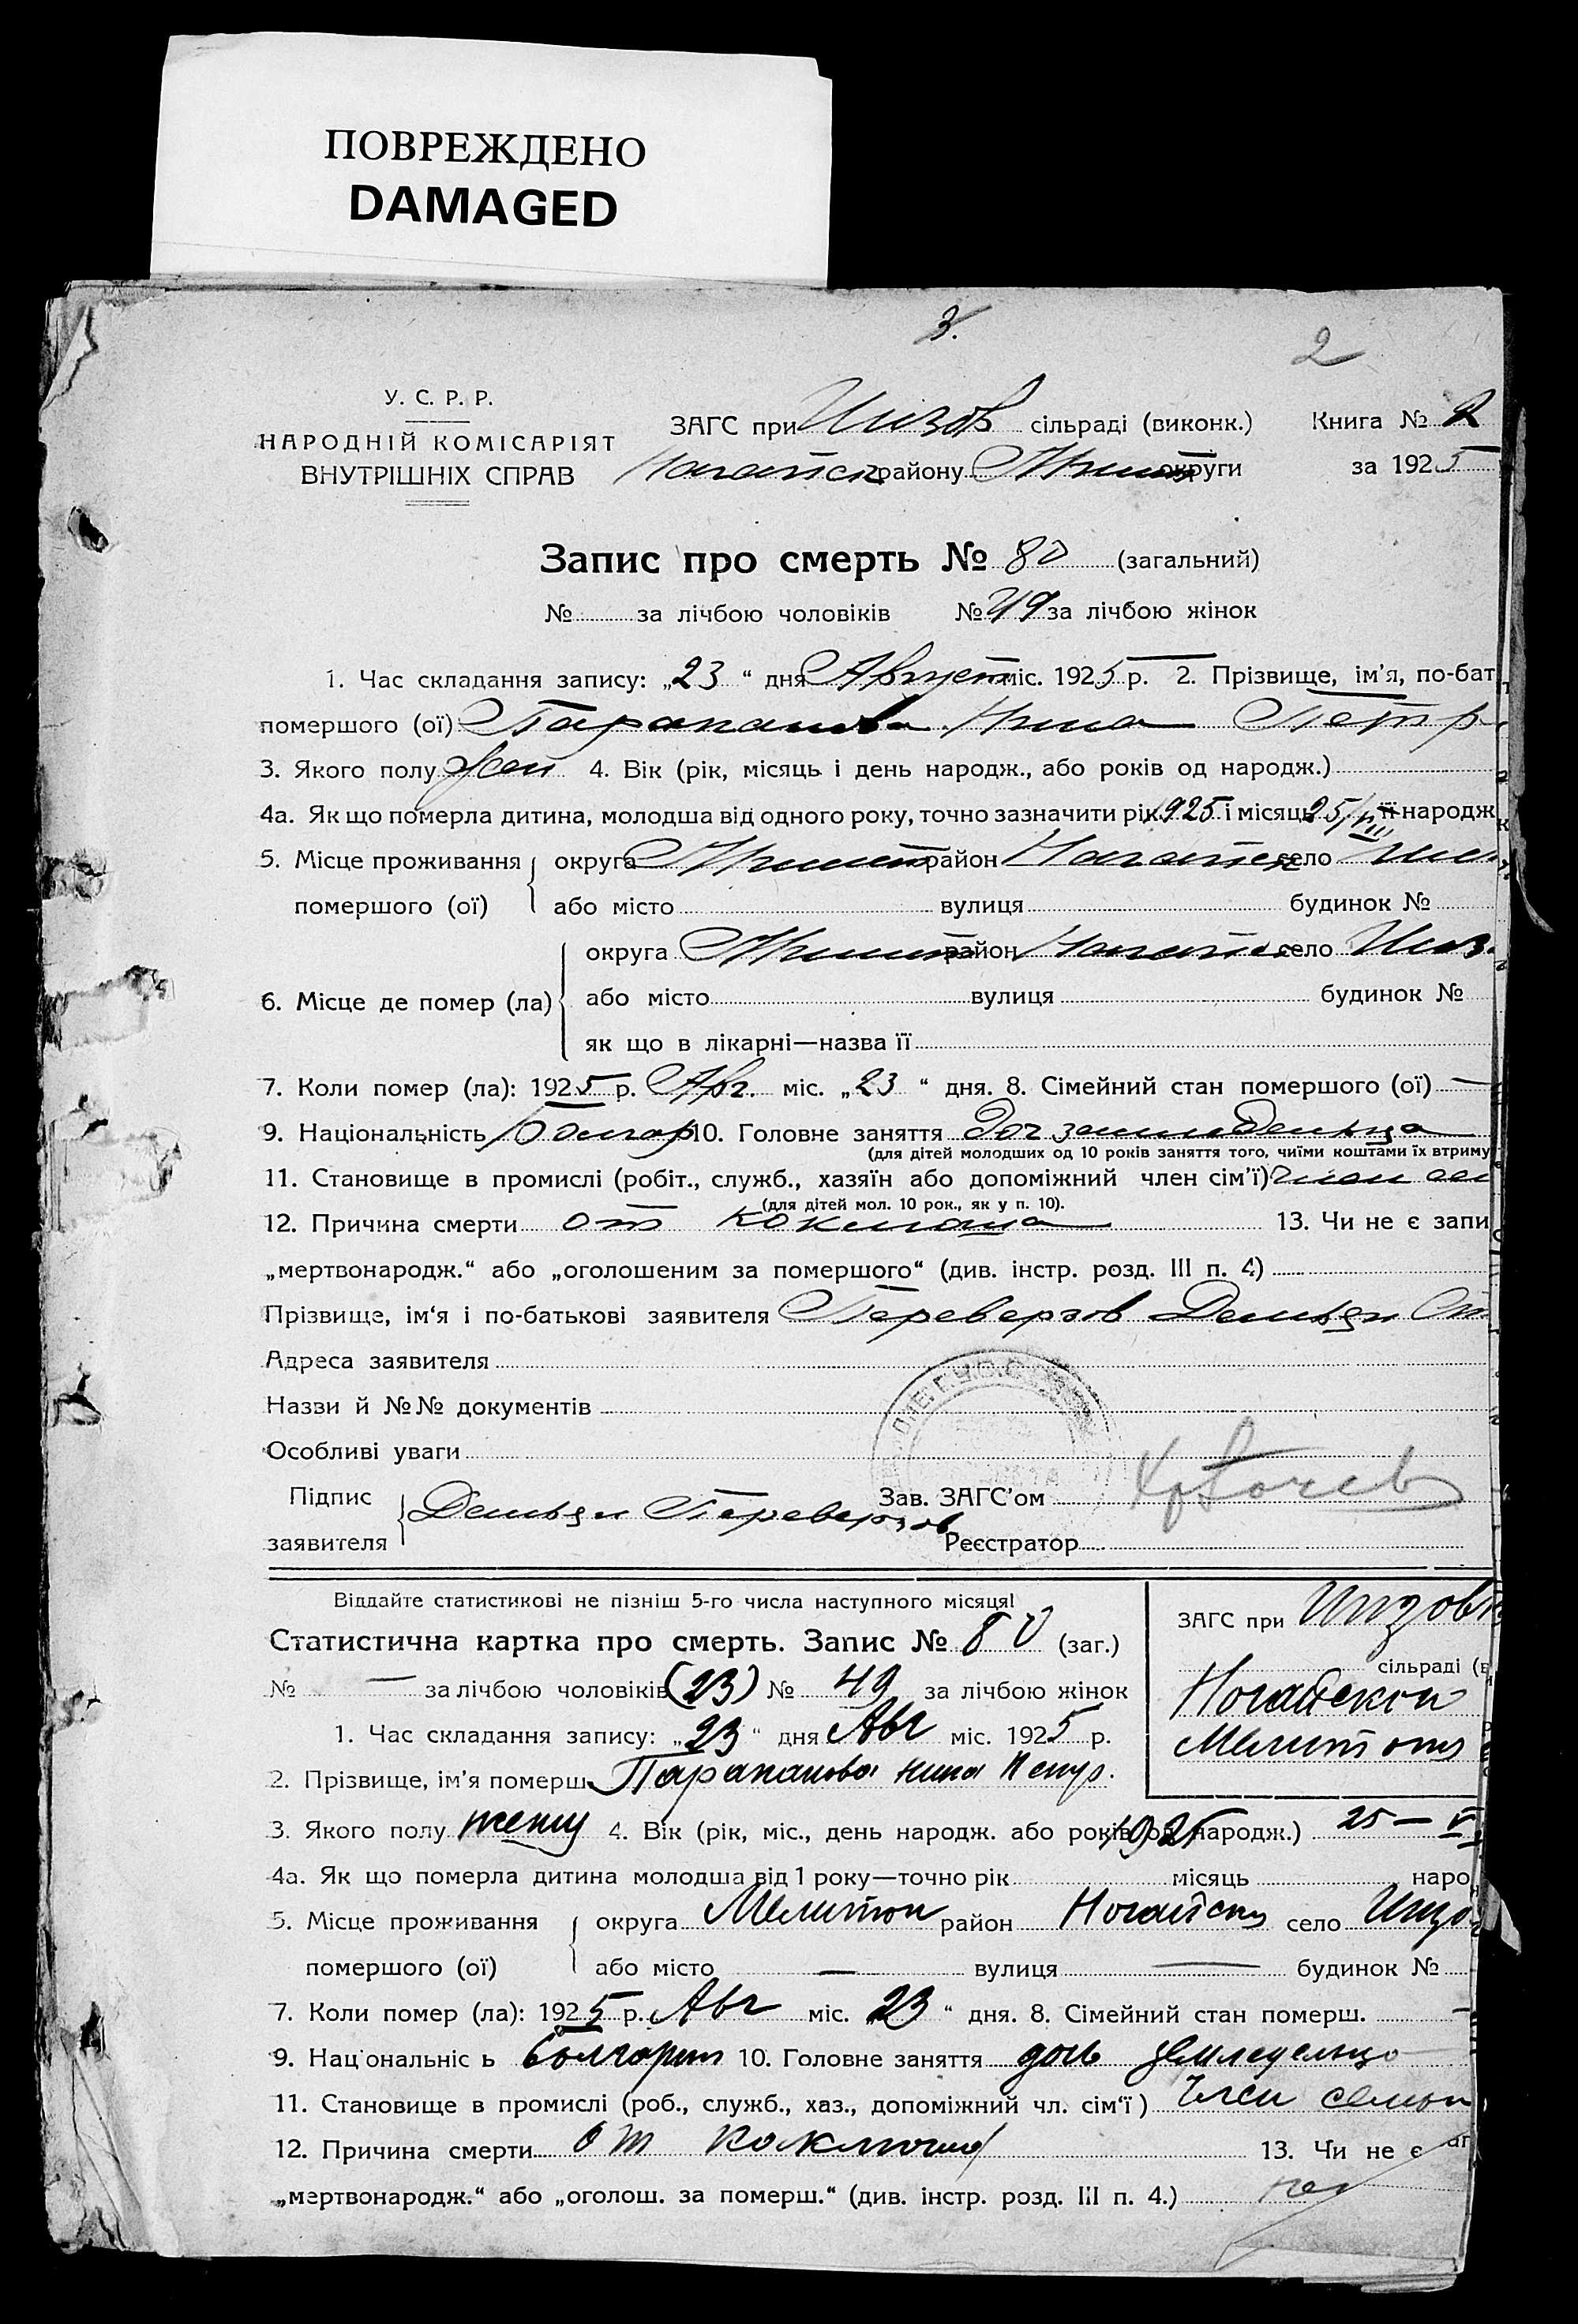 ПОВРЕЖДЕНО
DAMAGED
3.
2
У. С. Р. Р.
НАРОДНІЙ КОМІСАРІЯТ
ВНУТРІШНІХ СПРАВ
ЗАГС при Инзов сільраді (виконк.) Книга № 2
Ногайск району округи за 1925
Запис про смерть № 80 (загальний)
№ за лічбою чоловіків № 49 за лічбою жінок
1. Час складання запису: „23“ дня Август міс. 1925 р. 2. Прізвище, ім'я, по-бат
помершого (ої) Парапанова Нина Петр
3. Якого полу жен 4. Вік (рік, місяць і день народж., або років од народж.)
4а. Як що померла дитина, молодша від одного року, точно зазначити рік 1925 і місяць 25/ її народж
5. Місце проживання округа район Ногайск село
помершого (ої) або місто вулиця будинок №
округа район Ногайск село Инз
6. Місце де помер (ла) або місто вулиця будинок №
як що в лікарні—назва її
7. Коли помер (ла): 1925 р. Авг. міс. „23“ дня. 8. Сімейний стан помершого (ої) —
9. Національність Болгар 10. Головне заняття Доч земледельца
(для дітей молодших од 10 років заняття того, чиїми коштами їх втриму
11. Становище в промислі (робіт., служб., хазяїн або допоміжний член сім'ї) член сем
(для дітей мол. 10 рок., як у п. 10).
12. Причина смерти от коклюша 13. Чи не є запи
„мертвонародж.“ або „оголошеним за помершого“ (див. інстр. розд. III п. 4)
Прізвище, ім'я і по-батькові заявителя Переверзов Демьян
Адреса заявителя
Назви й №№ документів
Особливі уваги
Підпис
заявителя Демьян Переверзов
Зав. ЗАГС'ом
Реєстратор
Віддайте статистикові не пізніш 5-го числа наступного місяця!
Статистична картка про смерть. Запис № 80 (заг.)
ЗАГС при Инзовк
сільраді (в
Ногайскои
Мелитоп
№ — за лічбою чоловіків (23) № 49 за лічбою жінок
1. Час складання запису: „23“ дня Авг міс. 1925 р.
2. Прізвище, ім'я померш. Парапанова Нина Петр.
3. Якого полу женщ 4. Вік (рік, міс., день народж. або років од народж.) 1925 25 —
4а. Як що померла дитина молодша від 1 року—точно рік місяць наро
5. Місце проживання округа Мелитоп район Ногайск село Инзо
помершого (ої) або місто — вулиця — будинок №
7. Коли помер (ла): 1925 р. Авг міс. „23“ дня. 8. Сімейний стан померш. —
9. Національніс ь болгарин 10. Головне заняття дочь земледельца
11. Становище в промислі (роб., служб., хаз., допоміжний чл. сім'ї) Член семьи
12. Причина смерти от коклюша 13. Чи не є
„мертвонародж.“ або „оголош. за померш.“ (див. інстр. розд. III п. 4.) нет